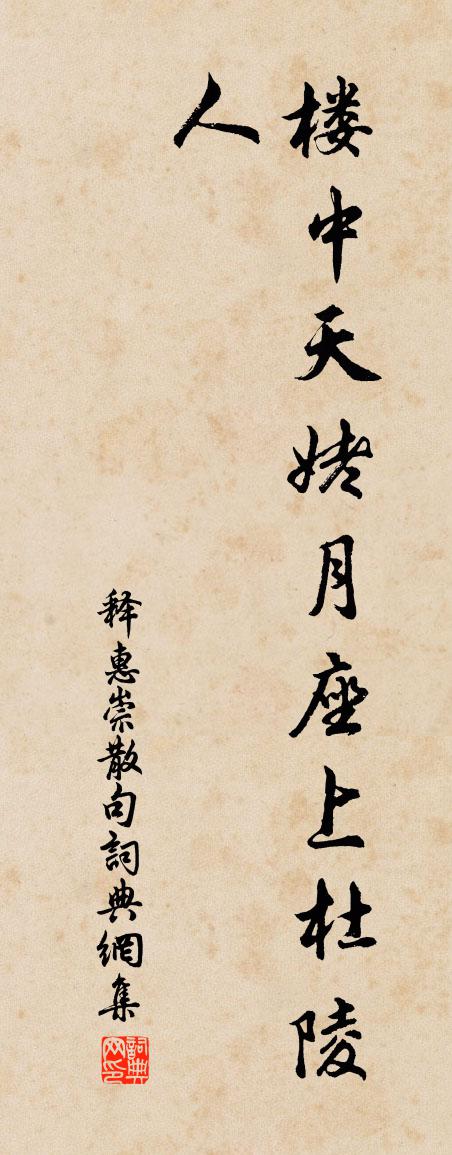 楼中天姥月座上杜陵
人
释惠崇散句詞典網集
詞典网印